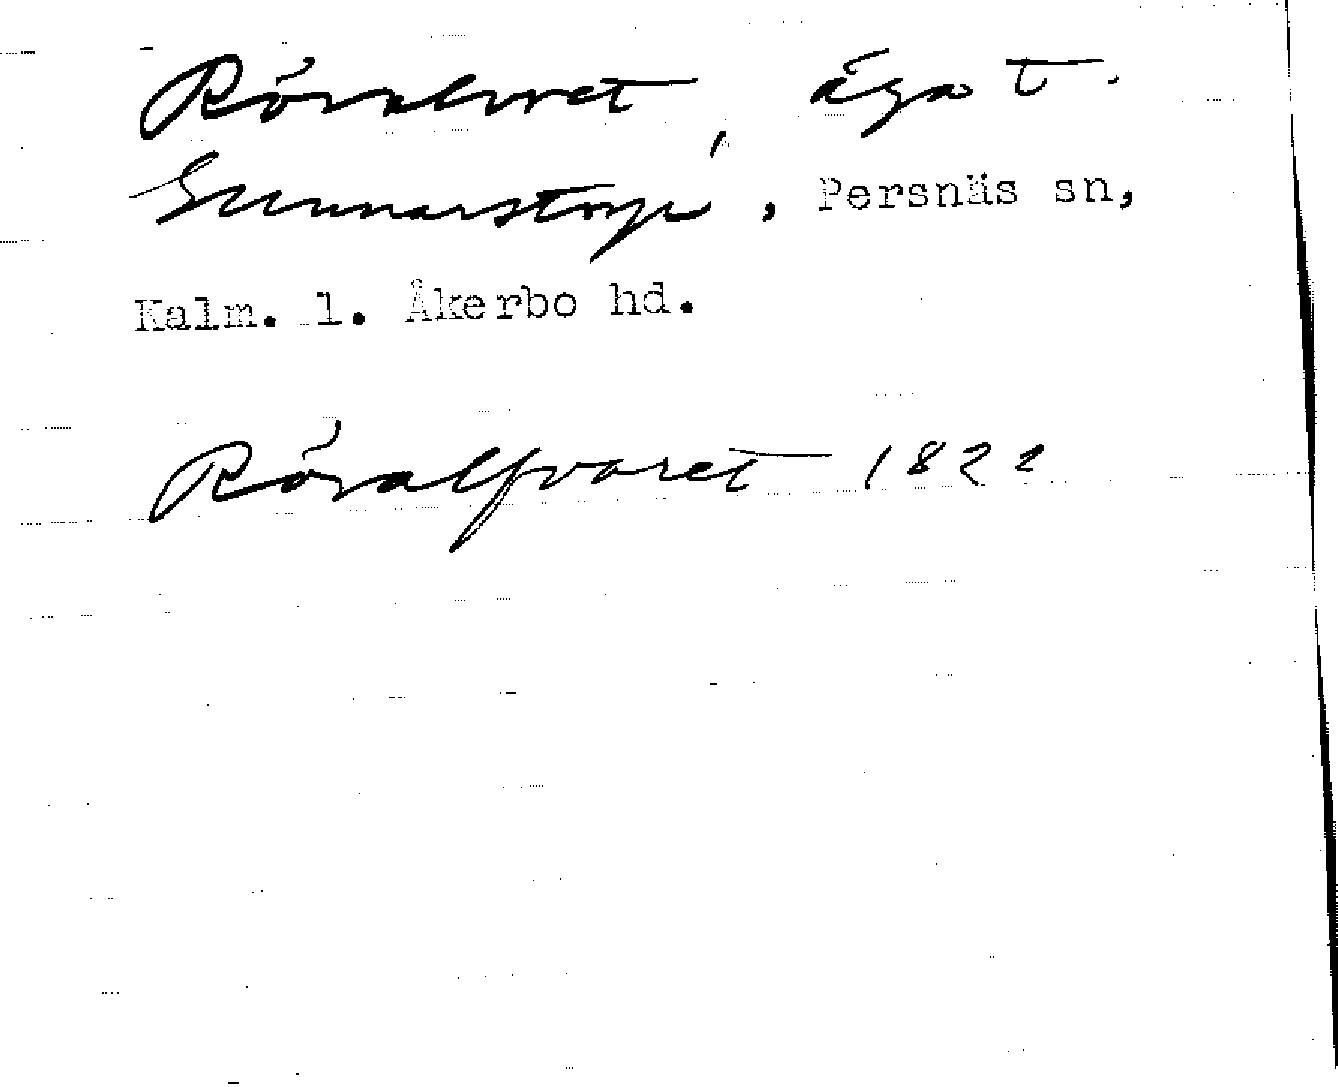 Röralvret, äga t.
Gunnarstorp, Persnäs sn,
Kalm. l. Åkerbo hd.
Röralfvaret 1822